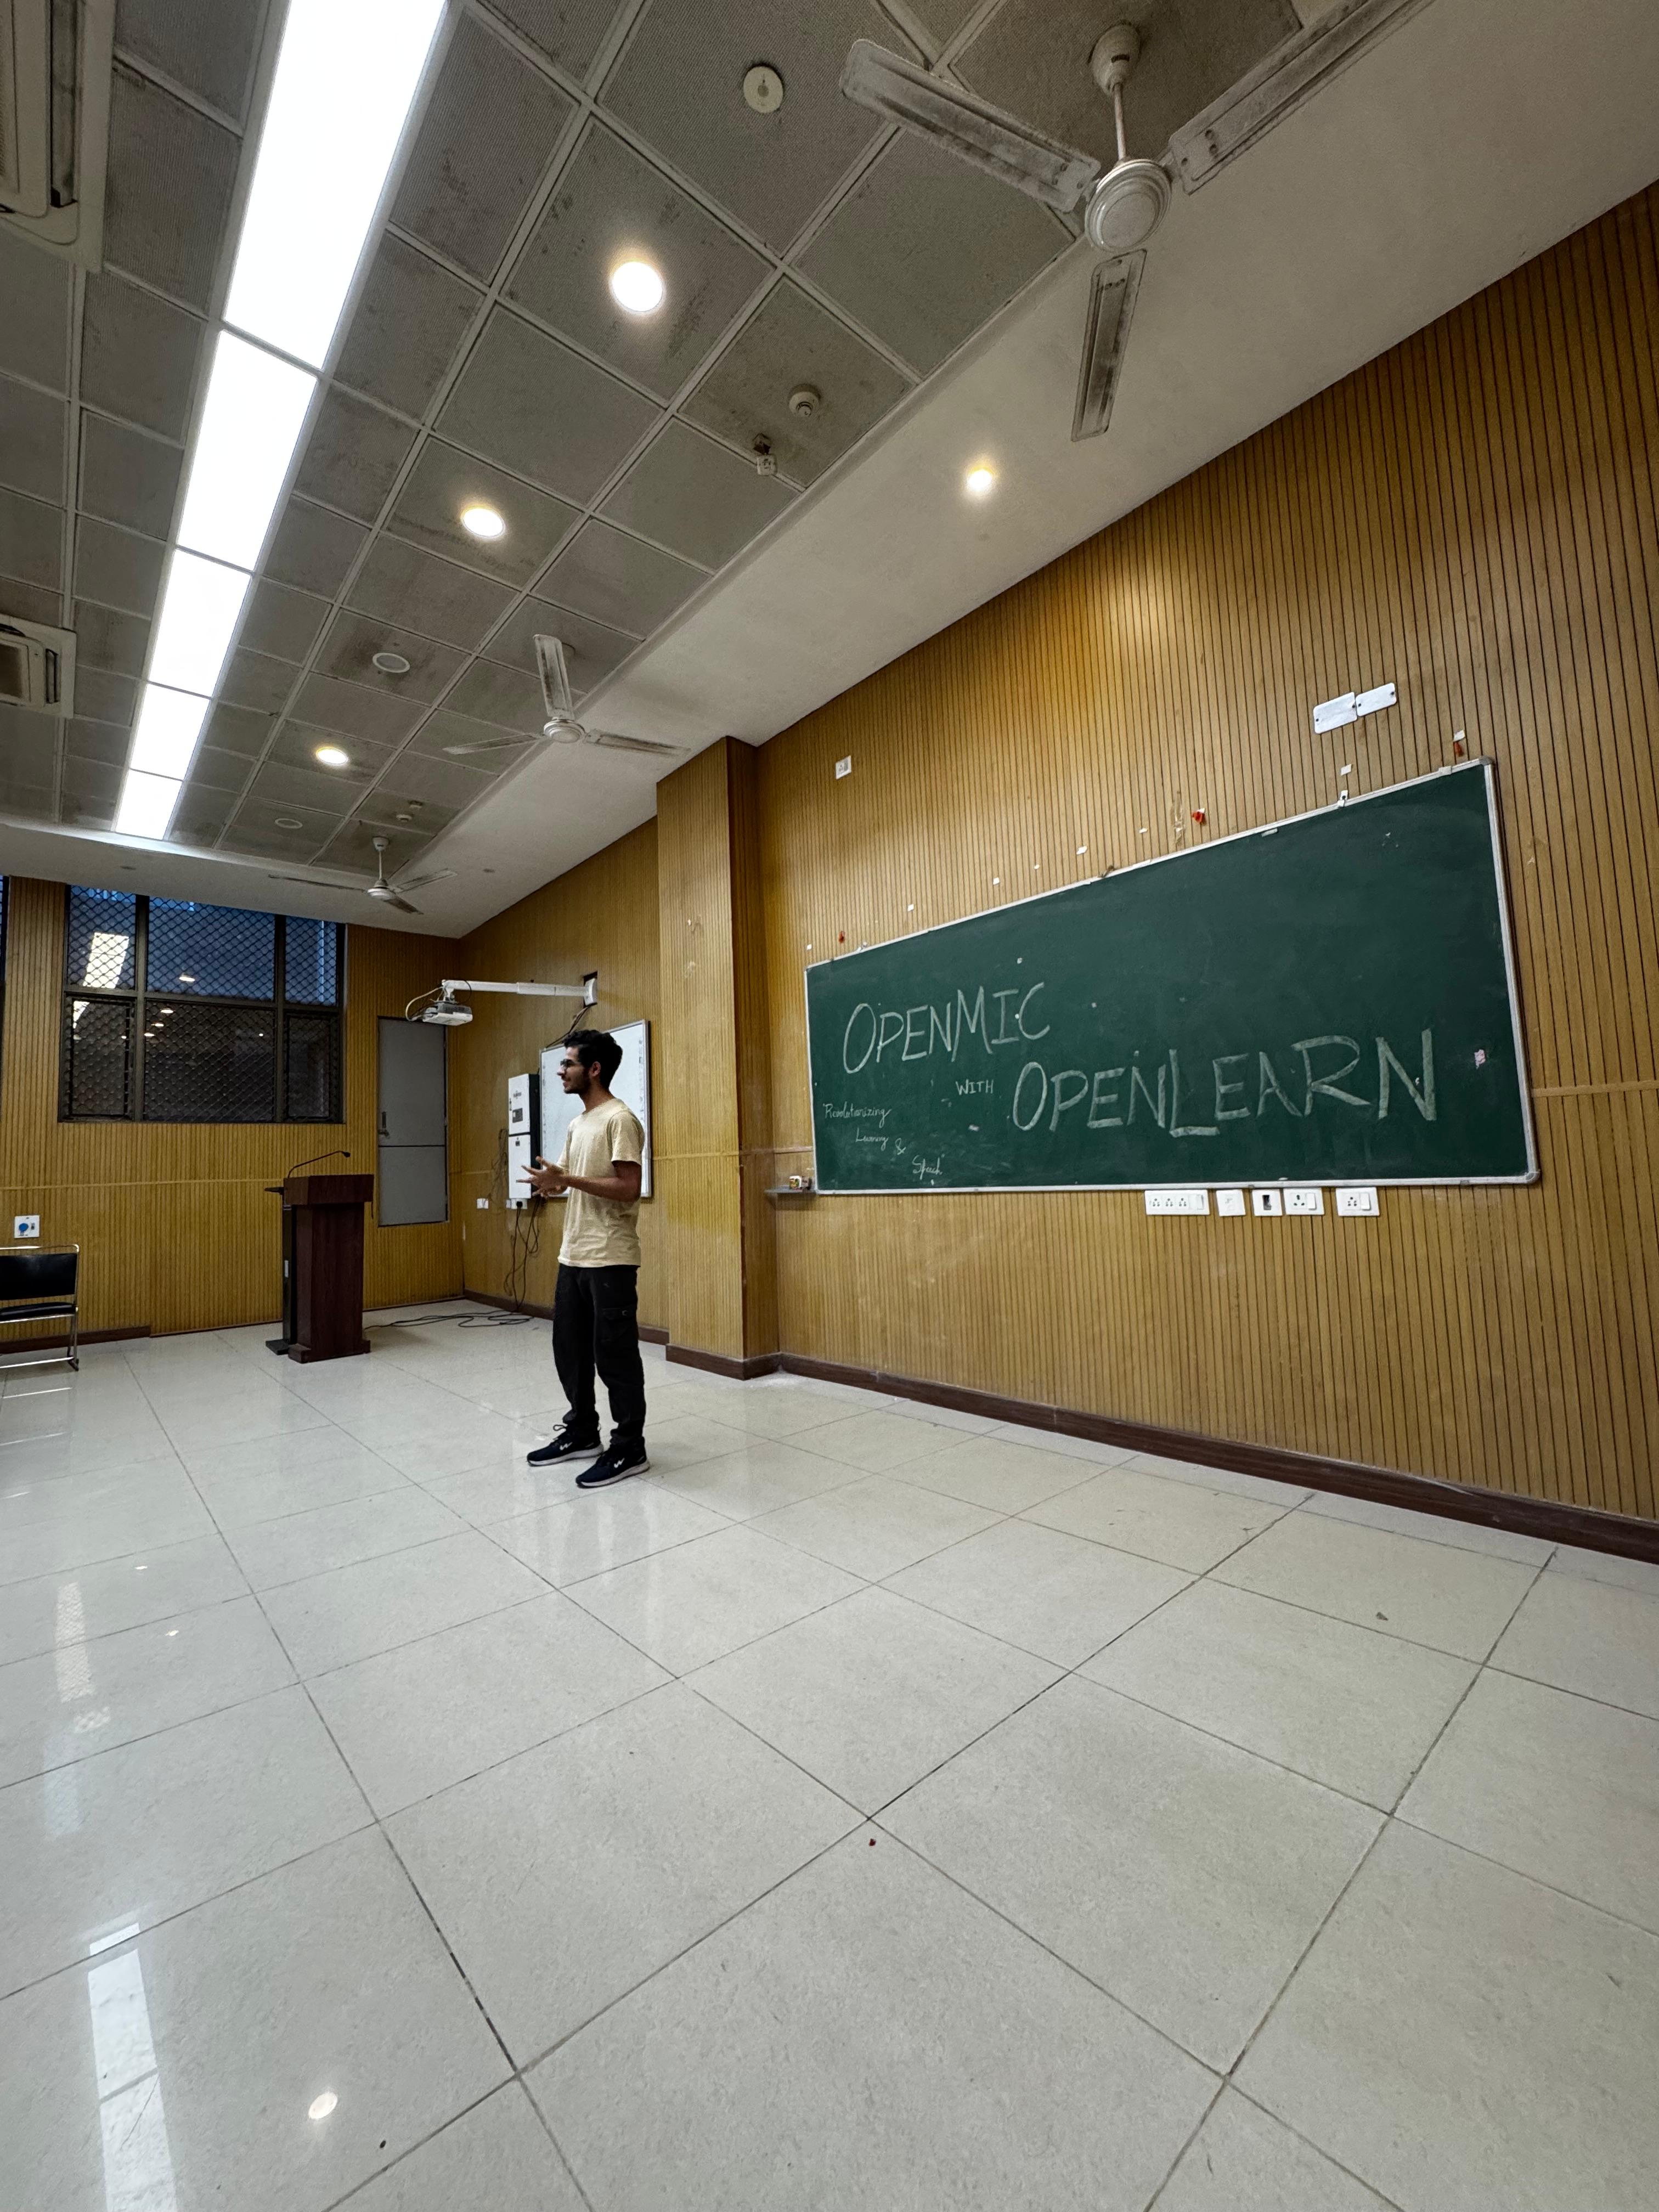 OPENMIC
WITH OPENLEARN
"Revolutionizing
Learning &
Speech"